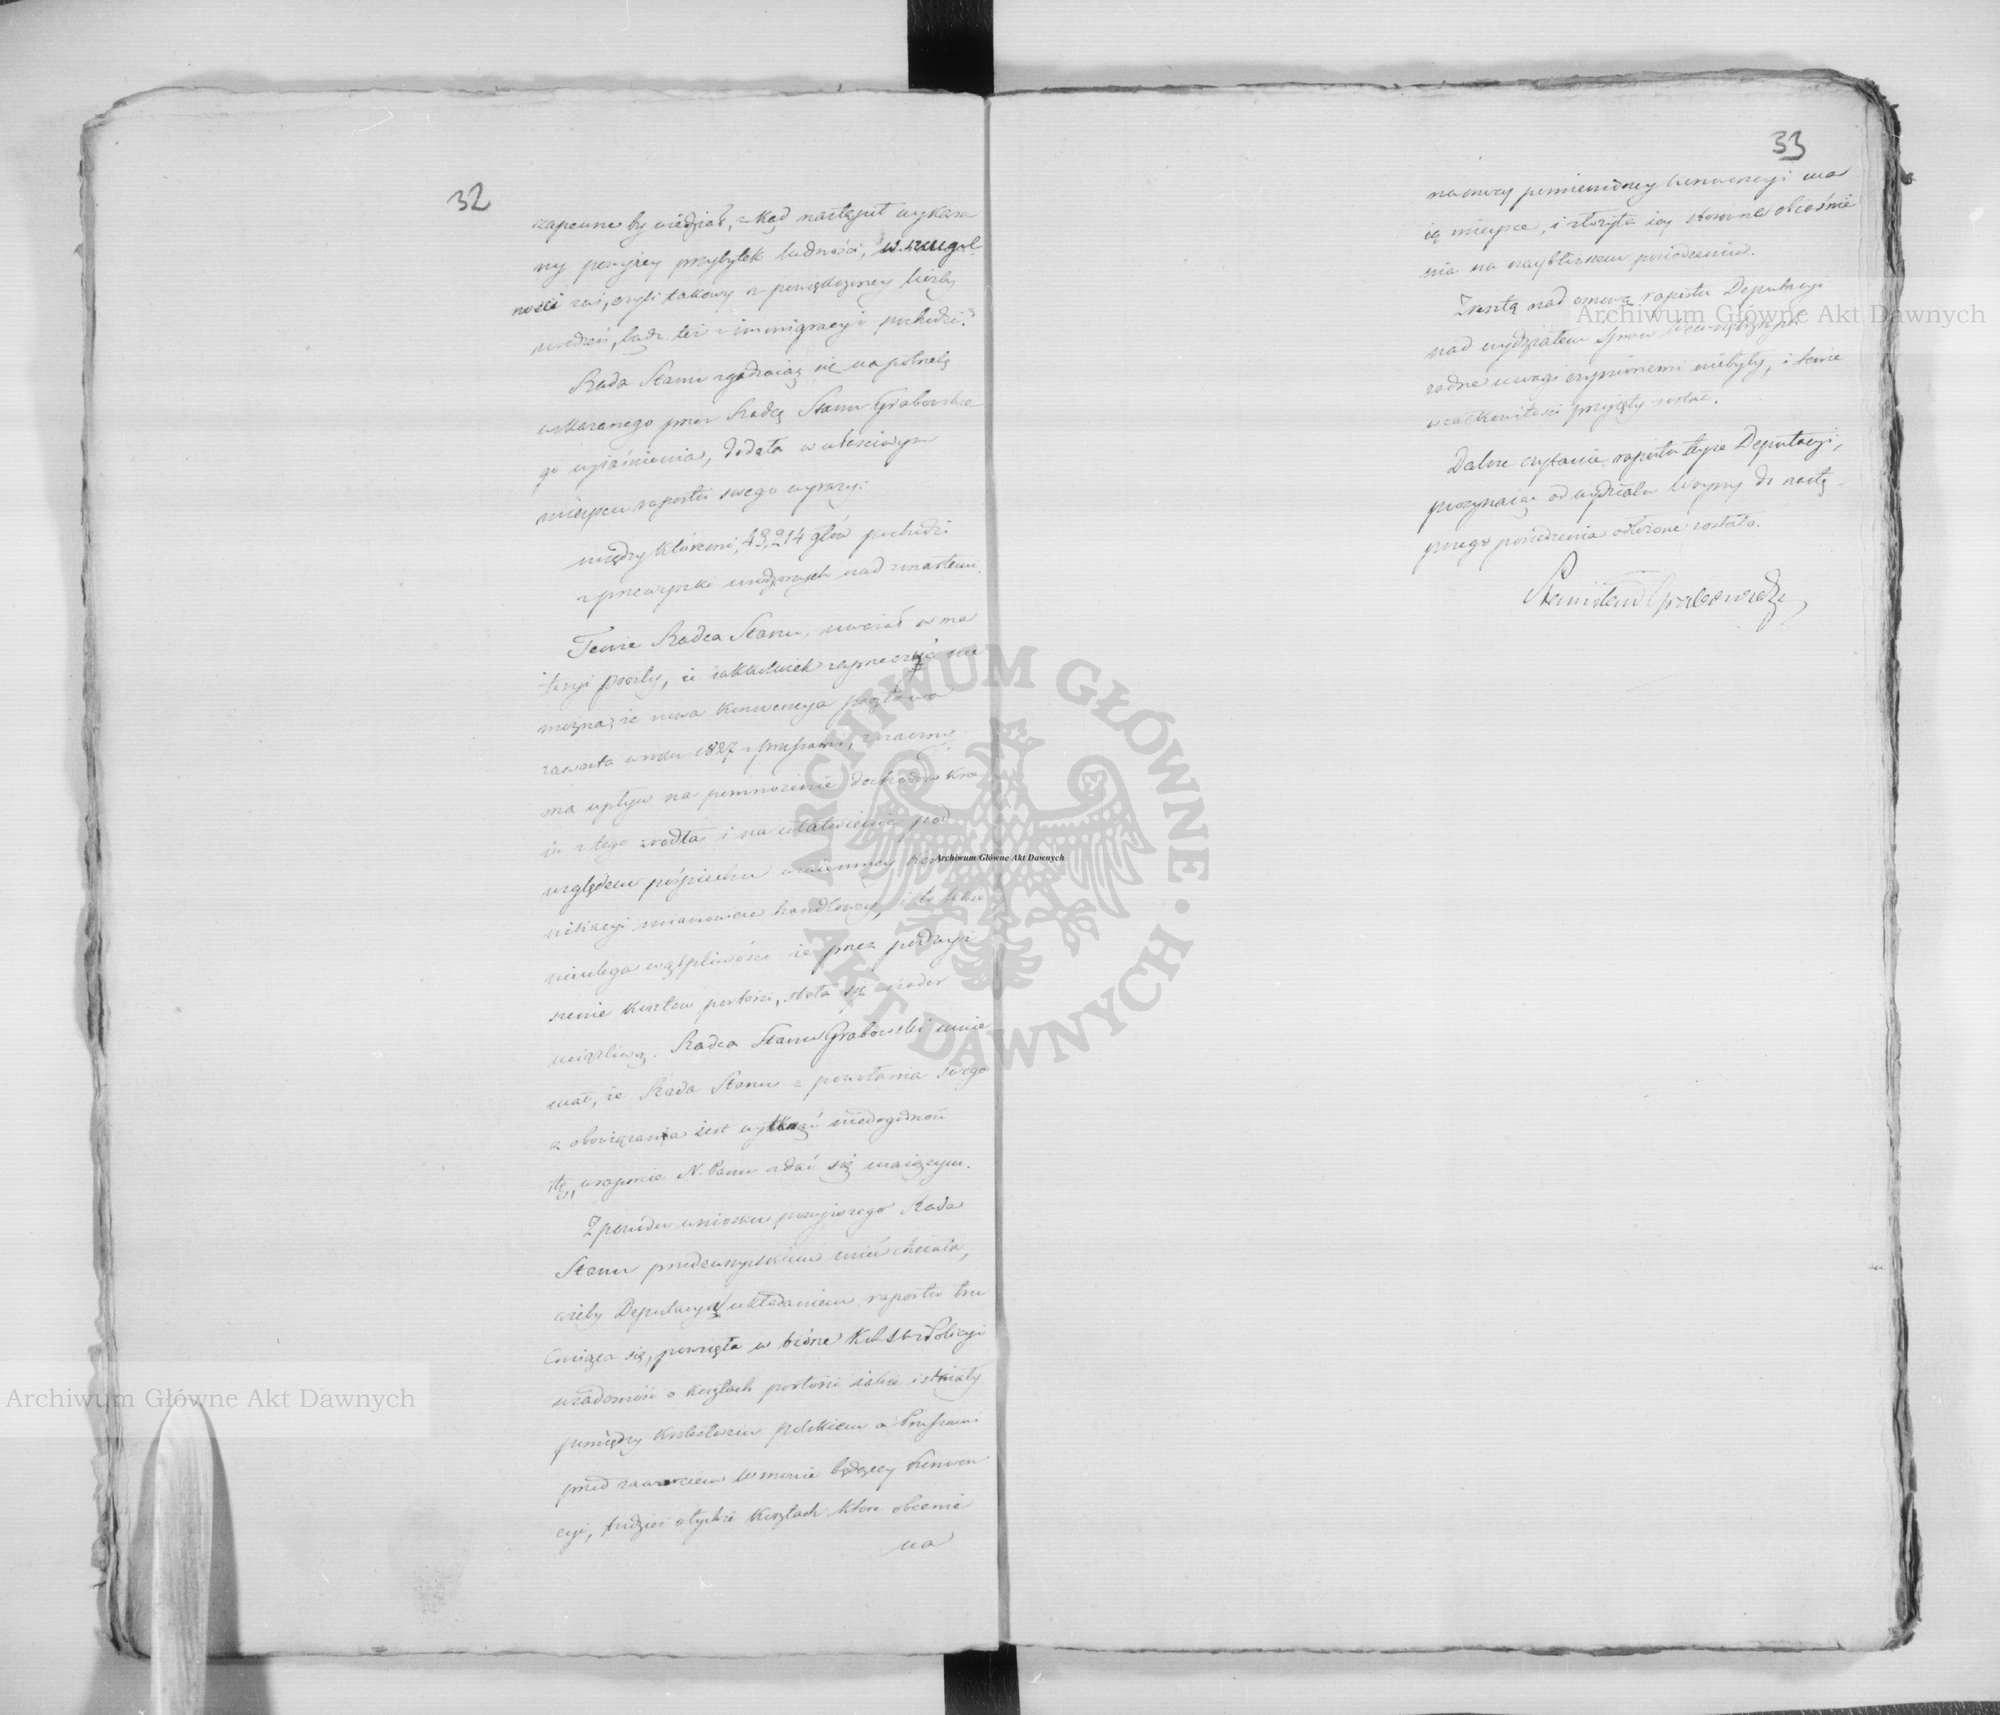 32
zapewne by wiedział, z kąd nastąpił wykaza
ny powyżey przybytek ludności, w szczegól-
ności zaś, czyli takowy z powiększoney liczby
urodzeń, bądź też z immigracyi pochodzi?
Rada Stanu zgadzaiąc się na potrzebę
wskazanego przez Radcę Stanu Grabowskie-
go wyiaśnienia, dodała w właściwym
mieyscu raportu swego wyrazy:
między któremi, 43,214 głów pochodzi
z przewyżki urodzonych nad zmarłemi.
Tenże Radca Stanu, uważał w ma
teryi poczty, że iakkolwiek zaprzeczyć nie
można, że nowa konwencya pocztowa
zawarta w roku 1827 z Prussami, znaczny
ma wpływ na pomnożenie dochodów kra
iu z tego źrodła i na ułatwienie pod
względem pośpiechu wzaiemney kommu
nikacyi mianowicie handlowey, i to iednak
nieulega wątpliwości że przez podwyż
szenie kosztów portorii, stała się nader
uciążliwą. Radca Stanu Grabowski mnie
mał, że Rada Stanu z powołania swego
obowiązana iest wytknąć niedogodność
tę, w raporcie N. Panu zdać się maiącym.
Z powodu wniosku powyższego Rada
Stanu przedewszystkiem mieć chciała,
ażeby Deputacya układaniem raportu tru
dniąca się, powzięła w biórze Kols: Sw: i Policyi
wiadomość o kosztach portorii iakie istniały
pomiędzy Królestwem Polskiem a Prussami
przed zawarciem w mowie będącey konwen
cyi, tudzież o tychże kosztach które obecnie
na
33
na mocy pomienioney konwencyi ma
ią mieysce, i złożyła iey stosowne obiaśnie
nia na naybliższem posiedzeniu.
Zresztą nad osnową raportu Deputacyi
nad wydziałem Spraw Wewnętrznych
żadne uwagi czynionemi niebyły, i tenże
w całkowitości przyięty został.
Dalsze czytanie raportu teyże Deputacyi,
poczynaiąc od wydziału Woyny do nastę-
pnego posiedzenia odłożone zostało.
Stanisław Grabowski
Archiwum Główne Akt Dawnych
Archiwum Główne Akt Dawnych
Archiwum Główne Akt Dawnych
ARCHIWUM GŁÓWNE · AKT DAWNYCH ·